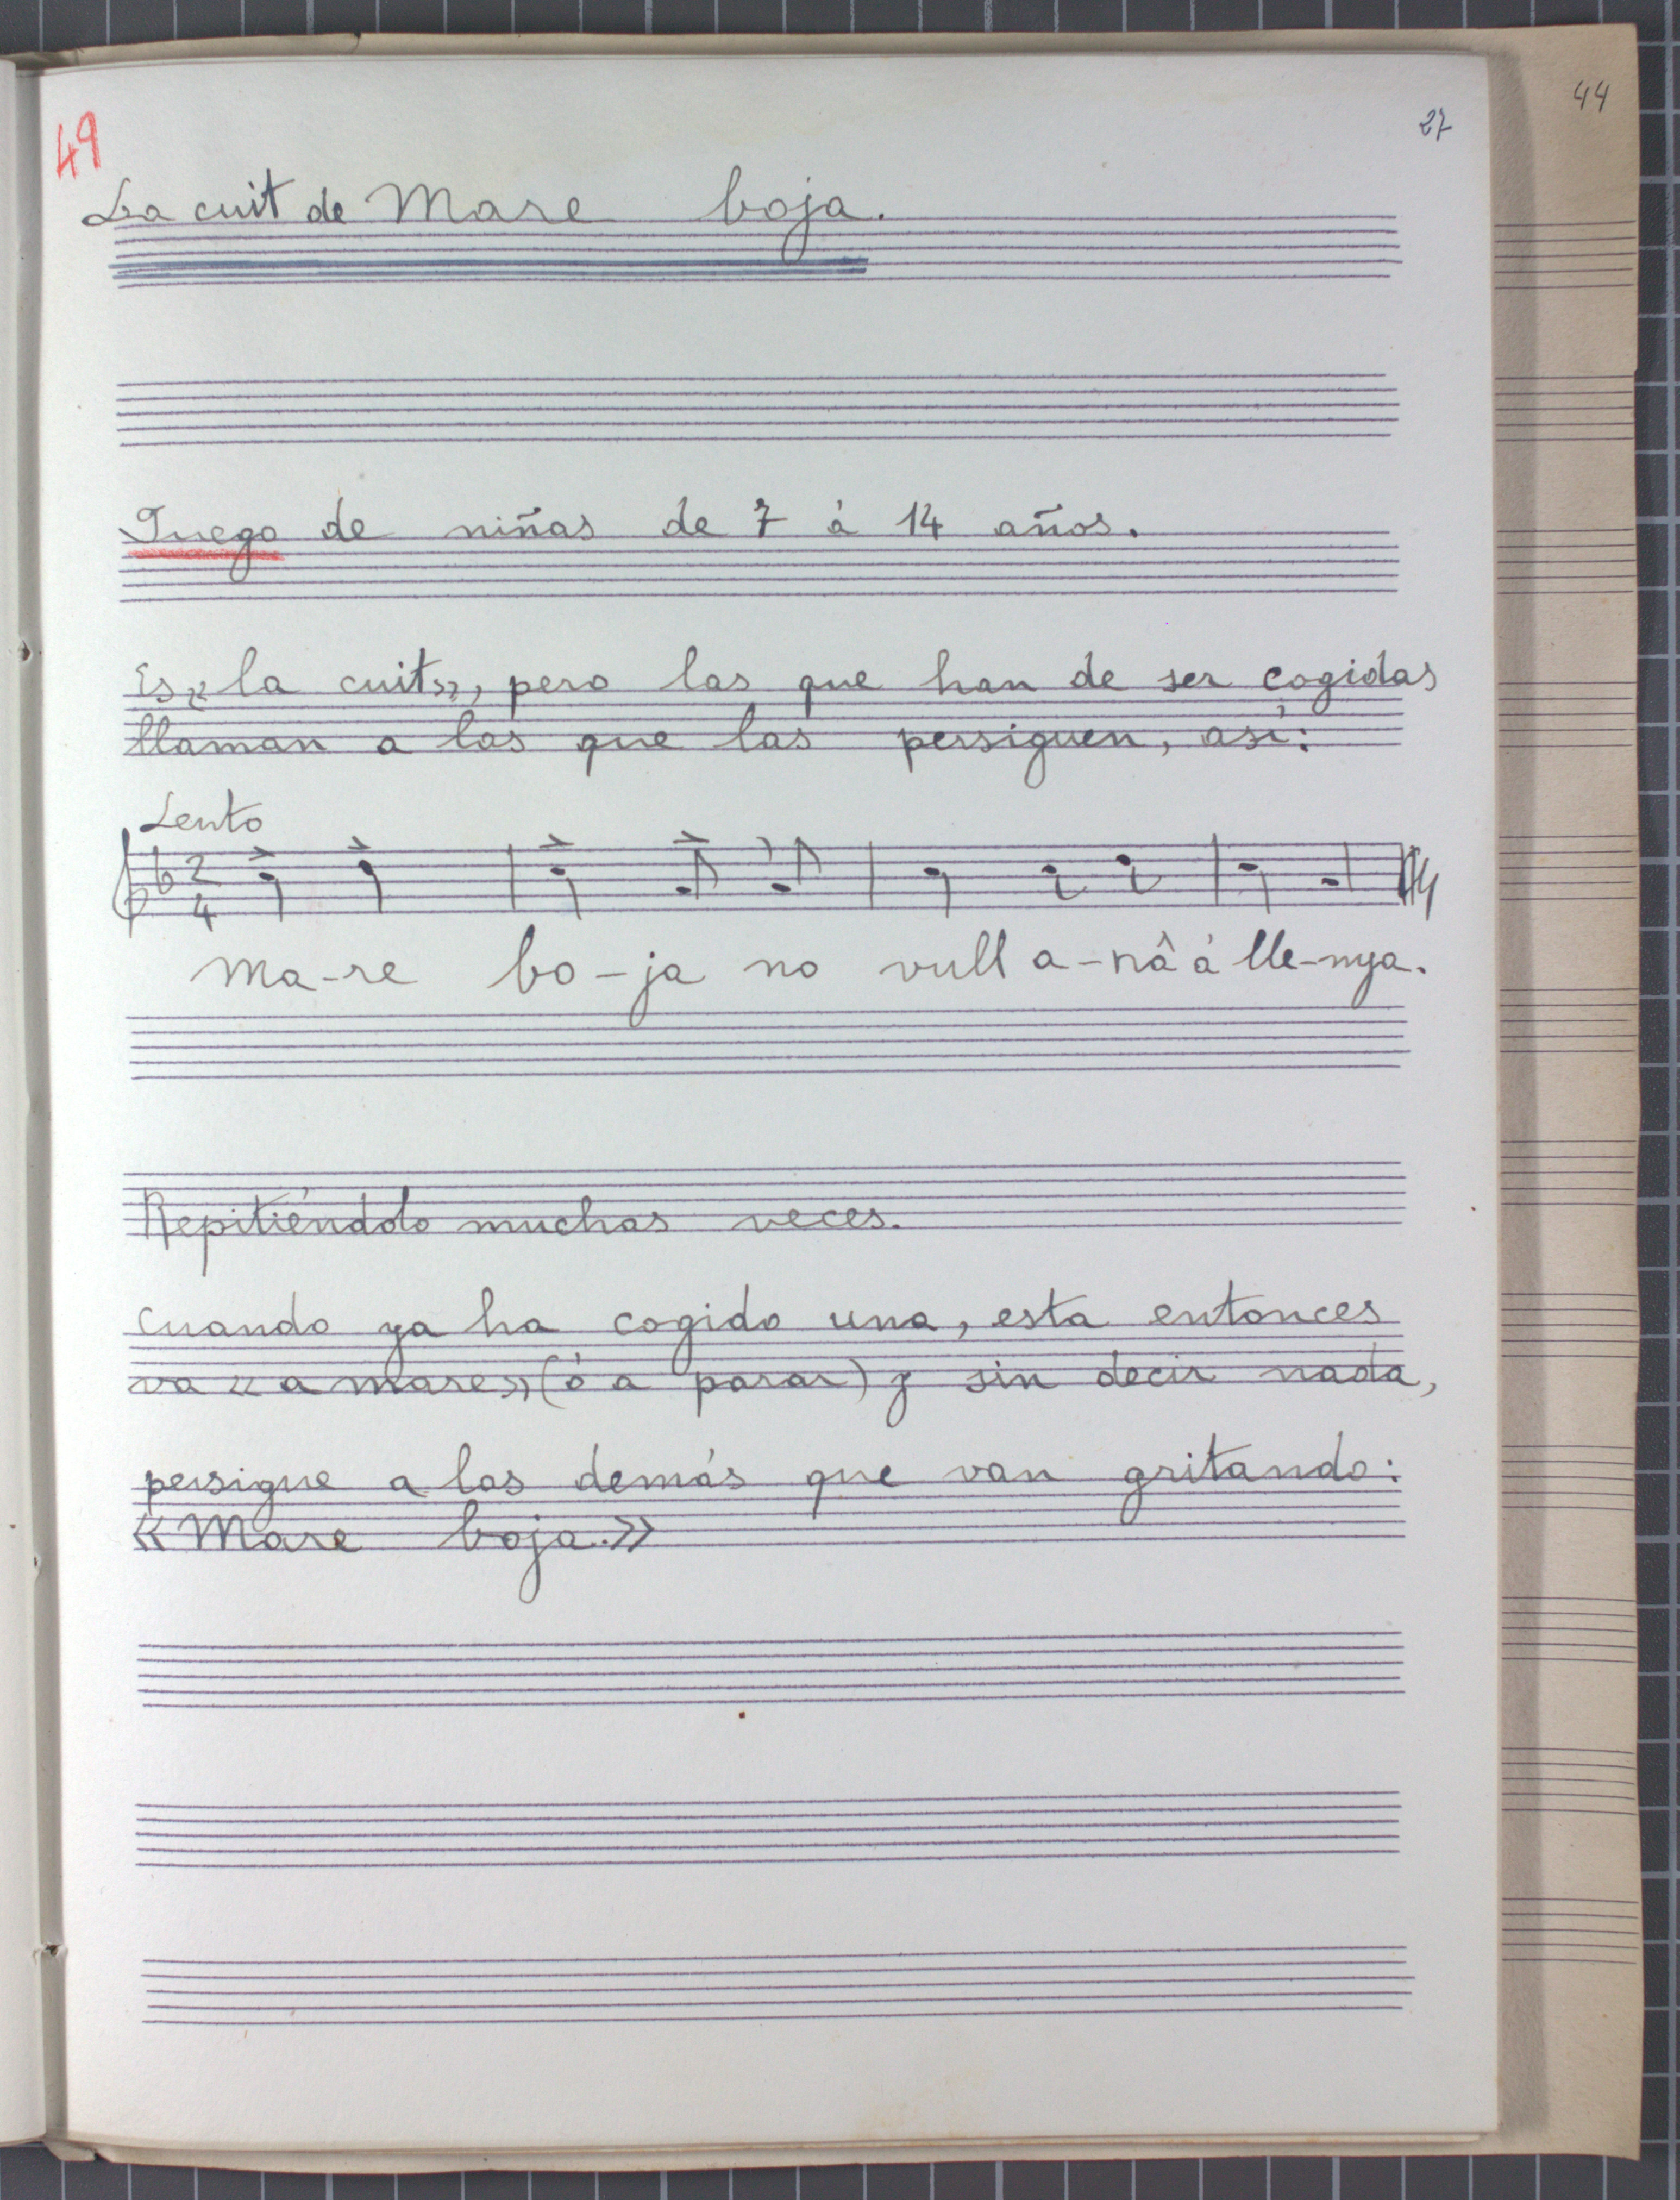 44
27
49
La cuit de Mare boja.
Juego de niñas de 7 à 14 años.
Es «la cuit», pero las que han de ser cogidas
llaman a las que las persiguen, así:
Lento
2
4
Ma-re bo-ja no vull a-nâ á lle-nya.
Repitiéndolo muchas veces.
Cuando ya ha cogido una, esta entonces
va «a mare» (ó a parar) y sin decir nada,
persigue a las demás que van gritando:
«Mare boja.»